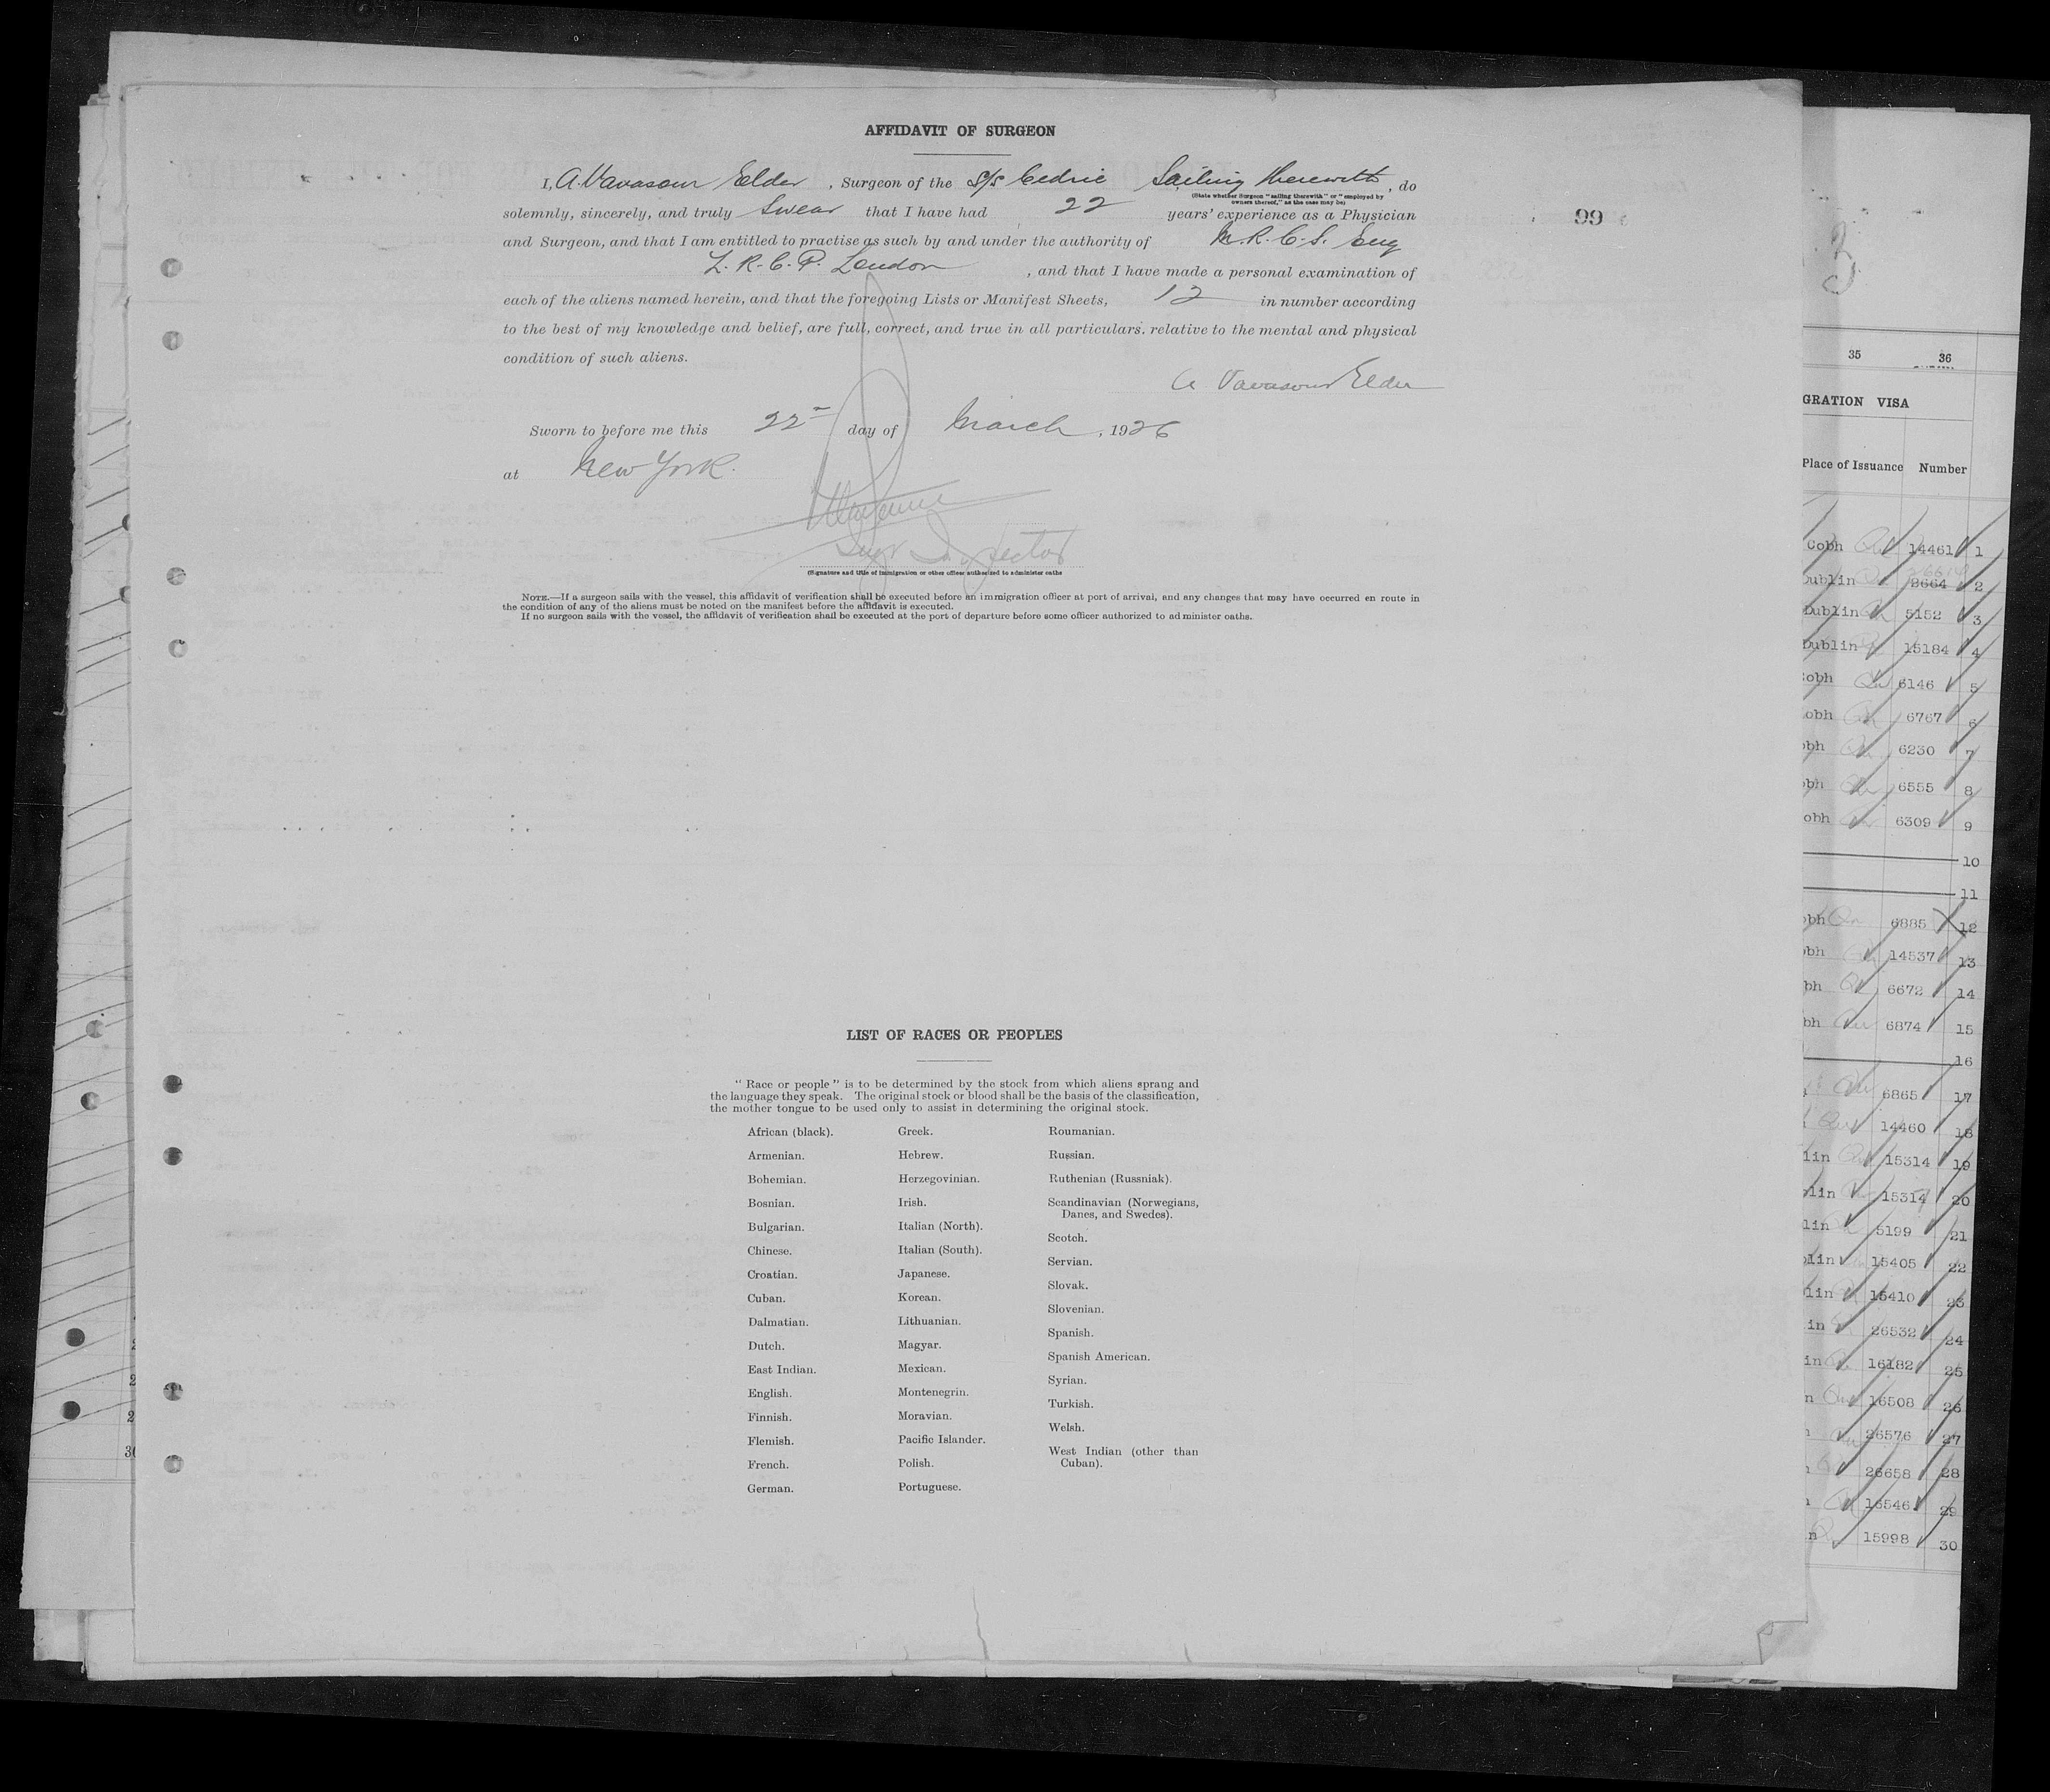 AFFIDAVIT OF SURGEON
I, A. Vavasour Elder, Surgeon of the S/S Cedric Sailing therewith, do
(State whether Surgeon "sailing therewith" or "employed by
owners thereof," as the case may be)
solemnly, sincerely, and truly Swear that I have had 22 years' experience as a Physician
99
and Surgeon, and that I am entitled to practise as such by and under the authority of M.R.C.S. Eng
L.R.C.P. London, and that I have made a personal examination of
each of the aliens named herein, and that the foregoing Lists or Manifest Sheets, 12 in number according
to the best of my knowledge and belief, are full, correct, and true in all particulars. relative to the mental and physical
condition of such aliens.
A. Vavasour Elder
Sworn to before me this 22 day of March, 1926
at New York.
Inspector
(Signature and title of immigration or other officer authorized to administer oaths
NOTE.—If a surgeon sails with the vessel, this affidavit of verification shall be executed before an immigration officer at port of arrival, and any changes that may have occurred en route in
the condition of any of the aliens must be noted on the manifest before the affidavit is executed.
If no surgeon sails with the vessel, the affidavit of verification shall be executed at the port of departure before some officer authorized to administer oaths.
LIST OF RACES OR PEOPLES
"Race or people" is to be determined by the stock from which aliens sprang and
the language they speak. The original stock or blood shall be the basis of the classification,
the mother tongue to be used only to assist in determining the original stock.
African (black).
Armenian.
Bohemian.
Bosnian.
Bulgarian.
Chinese.
Croatian.
Cuban.
Dalmatian.
Dutch.
East Indian.
English.
Finnish.
Flemish.
French.
German.
Greek.
Hebrew.
Herzegovinian.
Irish.
Italian (North).
Italian (South).
Japanese.
Korean.
Lithuanian.
Magyar.
Mexican.
Montenegrin.
Moravian.
Pacific Islander.
Polish.
Portuguese.
Roumanian.
Russian.
Ruthenian (Russniak).
Scandinavian (Norwegians,
Danes, and Swedes).
Scotch.
Servian.
Slovak.
Slovenian.
Spanish.
Spanish American.
Syrian.
Turkish.
Welsh.
West Indian (other than
Cuban).
3
35 36
GRATION VISA
Place of Issuance Number
Cobh 14461 1
Dublin 2664 2
Dublin 5152 3
Dublin 15184 4
obh 6146 5
obh 6767 6
bh 6230 7
bh 6555 8
obh 6309 9
10
11
bh 6885 12
bh 14537 13
bh 6672 14
bh 6874 15
16
6865 17
14460 18
lin 15314 19
lin 15314 20
lin 5199 21
lin 15405 22
lin 15410 23
in 26532 24
in 16182 25
n 16508 26
26576 27
26658 28
15546 29
n 15998 30